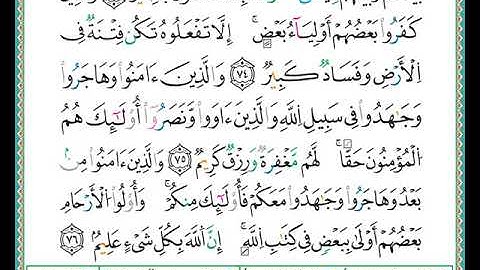 كَفَرُواْ بَعْضُهُمْ أَوْلِيَآءُ بَعْضٍۖ إِلَّا تَفْعَلُوهُ تَكُن فِتْنَةٞ فِي
اِ۬لْأَرْضِ وَفَسَادٞ كَبِيرٞ ٧٤ وَالَّذِينَ ءَامَنُواْ وَهَاجَرُواْ
وَجَٰهَدُواْ فِي سَبِيلِ اِ۬للَّهِ وَالَّذِينَ ءَاوَواْ وَّنَصَرُواْ أُوْلَٰٓئِكَ هُمُ
اُ۬لْمُؤْمِنُونَ حَقّٗاۖ لَّهُم مَّغْفِرَةٞ وَرِزْقٞ كَرِيمٞ ٧٥ وَالَّذِينَ ءَامَنُواْ مِنۢ
بَعْدُ وَهَاجَرُواْ وَجَٰهَدُواْ مَعَكُمْ فَأُوْلَٰٓئِكَ مِنكُمْۖ وَأُوْلُواْ اُ۬لْأَرْحَامِ
بَعْضُهُمْ أَوْلَىٰ بِبَعْضٖ فِي كِتَٰبِ اِ۬للَّهِۖ إِنَّ اَ۬للَّهَ بِكُلِّ شَيْءٍ عَلِيمُۢ ٧٦